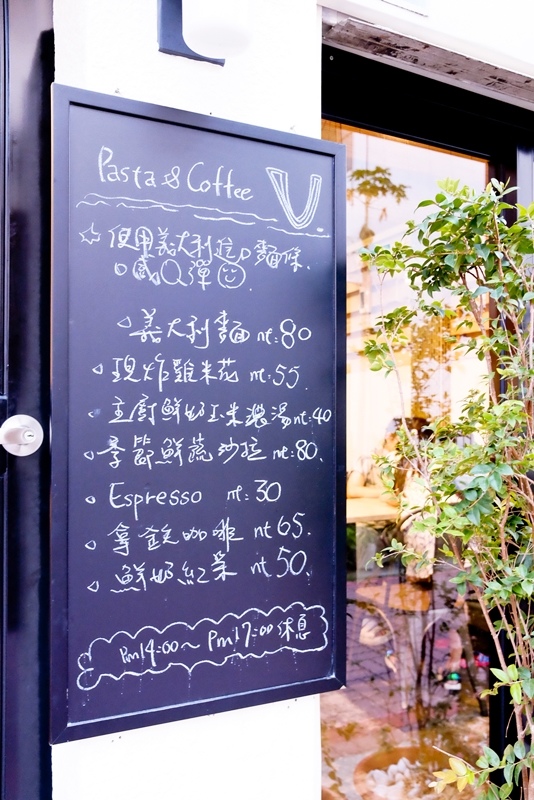 Pasta & Coffee V.
☆使用義大利進口麵條、
口感Q彈☺.
義大利麵 nt:80
現炸雞米花 nt:55.
主廚鮮奶玉米濃湯 nt:40
季節鮮蔬沙拉 nt:80、
Espresso nt:30
拿鐵咖啡 nt65.
鮮奶紅茶 nt50.
Pm14:00~Pm17:00 休息